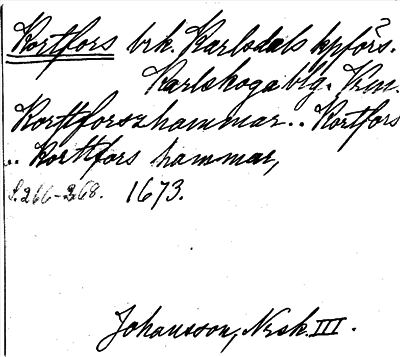 Kortfors brk. Karlsdals kpförs.
Karlskoga blg. Krm.
Kortforszhammar .. Kortfors
.. Kortfors hammar,
S. 266-268. 1673.
Johansson, Nssk. III.